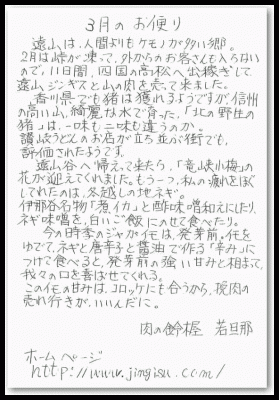 3月のお便り
遠山は、人間よりもケモノが多い郷。
2月は峠が凍って、外からのお客さんも入らない
ので、11日間、四国の高松へ出稼ぎして
遠山ジンギスと山の肉を売って来ました。
香川県でも猪は獲れるようですが信州
の高い山、綺麗な水で育った、「北の野生の
猪」は、一味も二味も違うのか。
讃岐うどんのお店が立ち並ぶ街でも、
評価されたようです。
遠山谷へ帰って来たら、「竜峡小梅」の
花が迎えてくれました。もう一つ、私の疲れをほぐ
してれたのは、冬越しの地ネギ。
伊那谷名物「煮イカ」と酢味噌和えにしたり、
ネギ味噌を、白いご飯にのせて食べたり。
今の時季のジャガイモは、発芽前。イモを
ゆでて、ネギと唐辛子と醤油で作る「辛み」に
つけて食べると、発芽前の強い甘みと相まって、
我々の口を喜ばせてくれる。
この イモの甘みは、コロッケにも合うから、挽肉の
売れ行きが、いいんだに。
肉の鈴木屋 若旦那
ホームページ
http://www.jingisu.com/